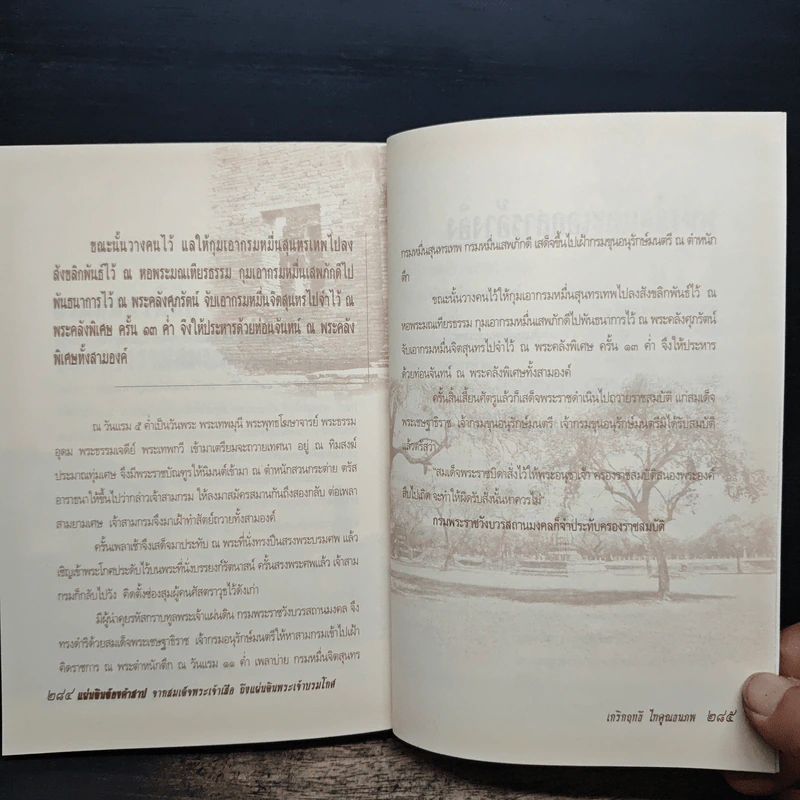 ขณะนั้นวางคนไว้ แลให้กุมเอากรมหมื่นสุนทรเทพไปลง
สังขลิกพันธ์ไว้ ณ หอพระมณเฑียรธรรม กุมเอากรมหมื่นเสพภักดีไป
พันธนาการไว้ ณ พระคลังศุภรัตน์ จับเอากรมหมื่นจิตสุนทรไปจำไว้ ณ
พระคลังพิเศษ ครั้น ๑๓ ค่ำ จึงให้ประหารด้วยท่อนจันทน์ ณ พระคลัง
พิเศษทั้งสามองค์
ณ วันแรม ๕ ค่ำเป็นวันพระ พระเทพมุนี พระพุทธโฆษาจารย์ พระธรรม
อุดม พระธรรมเจดีย์ พระเทพกวี เข้ามาเตรียมจะถวายเทศนา อยู่ ณ ทิมสงฆ์
ประมาณทุ่มเศษ จึงมีพระราชบัณฑูรให้นิมนต์เข้ามา ณ ตำหนักสวนกระต่าย ตรัส
อาราธนาให้ขึ้นไปว่ากล่าวเจ้าสามกรม ให้ลงมาสมัครสมานกันถึงสองกลับ ต่อเพลา
สามยามเศษ เจ้าสามกรมจึงมาเฝ้าทำสัตย์ถวายทั้งสามองค์
ครั้นเพลาเช้าจึงเสด็จมาประทับ ณ พระที่นั่งทรงปืนสรงพระบรมศพ แล้ว
เชิญเข้าพระโกศประดับไว้บนพระที่นั่งบรรยงก์รัตนาสน์ ครั้นสรงพระศพแล้ว เจ้าสาม
กรมก็กลับไปวัง คิดตั้งซ่องสุมผู้คนศัสตราวุธไว้ดังเก่า
มีผู้นำคุยรหัสกราบทูลพระเจ้าแผ่นดิน กรมพระราชวังบวรสถานมงคล จึง
ทรงดำริด้วยสมเด็จพระเชษฐาธิราช เจ้ากรมอนุรักษ์มนตรีให้หาสามกรมเข้าไปเฝ้า
คิดราชการ ณ พระตำหนักตึก ณ วันแรม ๑๑ ค่ำ เพลาบ่าย กรมหมื่นจิตสุนทร
๒๘๔ แผ่นดินต้องคำสาป จากสมเด็จพระเจ้าเสือ ถึงแผ่นดินพระเจ้าบรมโกศ
กรมหมื่นสุนทรเทพ กรมหมื่นเสพภักดี เสด็จขึ้นไปเฝ้ากรมขุนอนุรักษ์มนตรี ณ ตำหนัก
ตึก
ขณะนั้นวางคนไว้ให้กุมเอากรมหมื่นสุนทรเทพไปลงสังขลิกพันธ์ไว้ ณ
หอพระมณเฑียรธรรม กุมเอากรมหมื่นเสพภักดีไปพันธนาการไว้ ณ พระคลังศุภรัตน์
จับเอากรมหมื่นจิตสุนทรไปจำไว้ ณ พระคลังพิเศษ ครั้น ๑๓ ค่ำ จึงให้ประหาร
ด้วยท่อนจันทน์ ณ พระคลังพิเศษทั้งสามองค์
ครั้นสิ้นเสี้ยนศัตรูแล้วก็เสด็จพระราชดำเนินไปถวายราชสมบัติ แก่สมเด็จ
พระเชษฐาธิราช เจ้ากรมขุนอนุรักษ์มนตรี เจ้ากรมขุนอนุรักษ์มนตรีมิได้รับสมบัติ
แล้วตรัสว่า
"สมเด็จพระราชบิดาสั่งไว้ให้พระอนุชาเจ้า ครองราชสมบัติสนองพระองค์
สืบไปเถิด จะทำให้ผิดรับสั่งนั้นเหควรไม่"
กรมพระราชวังบวรสถานมงคลก็จำประทับครองราชสมบัติ
เกริกฤทธิ์ ไทคูณธนภพ ๒๘๕